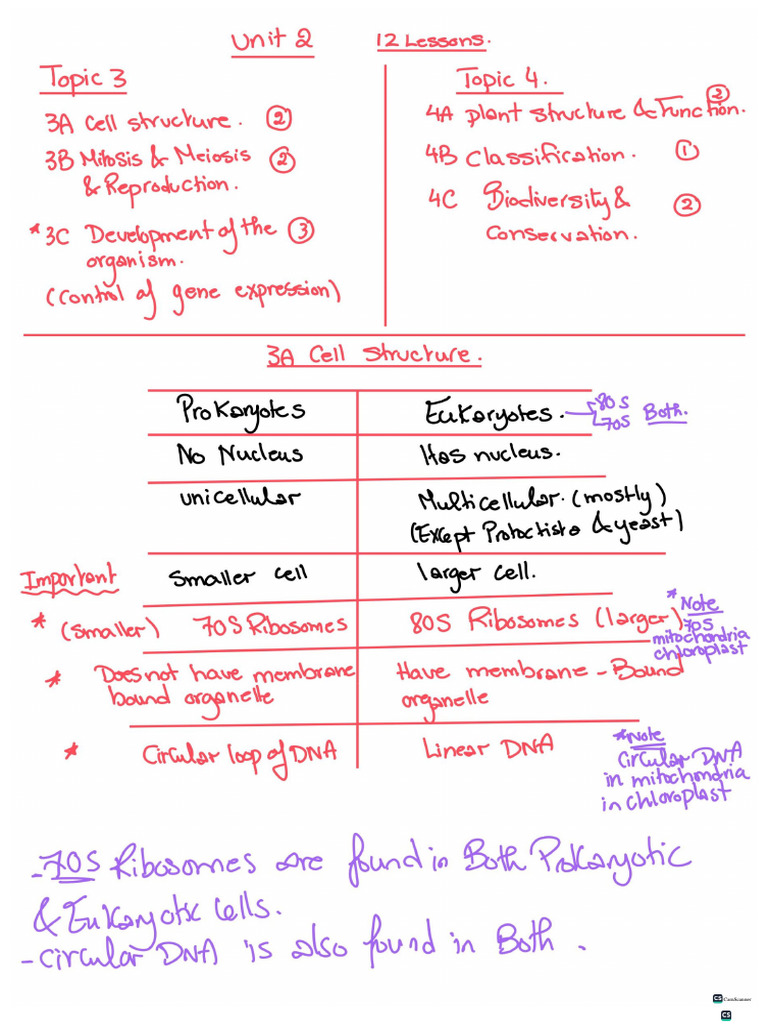 Unit 2 12 Lessons.
Topic 3
3A Cell structure. 2
3B Mitosis & Meiosis 2
& Reproduction.
* 3C Development of the 3
organism.
(Control of gene expression)
Topic 4.
4A Plant structure & Function. 2
4B Classification. 1
4C Biodiversity & 2
Conservation.
3A Cell Structure.
Prokaryotes Eukaryotes. 80S
70S Both.
No Nucleus Has nucleus.
unicellular Multicellular. (mostly)
(Except Protactista & yeast)
Important
Smaller cell larger cell.
* (Smaller) 70S Ribosomes 80S Ribosomes (larger)
* Note
70S
mitochondria
chloroplast
* Does not have membrane Have membrane - Bound
bound organelle organelle
* Circular loop of DNA Linear DNA
* Note
Circular DNA
in mitochondria
in chloroplast
- 70S Ribosomes are found in Both Prokaryotic
& Eukaryotic cells.
- Circular DNA is also found in Both.
CS CamScanner
CS